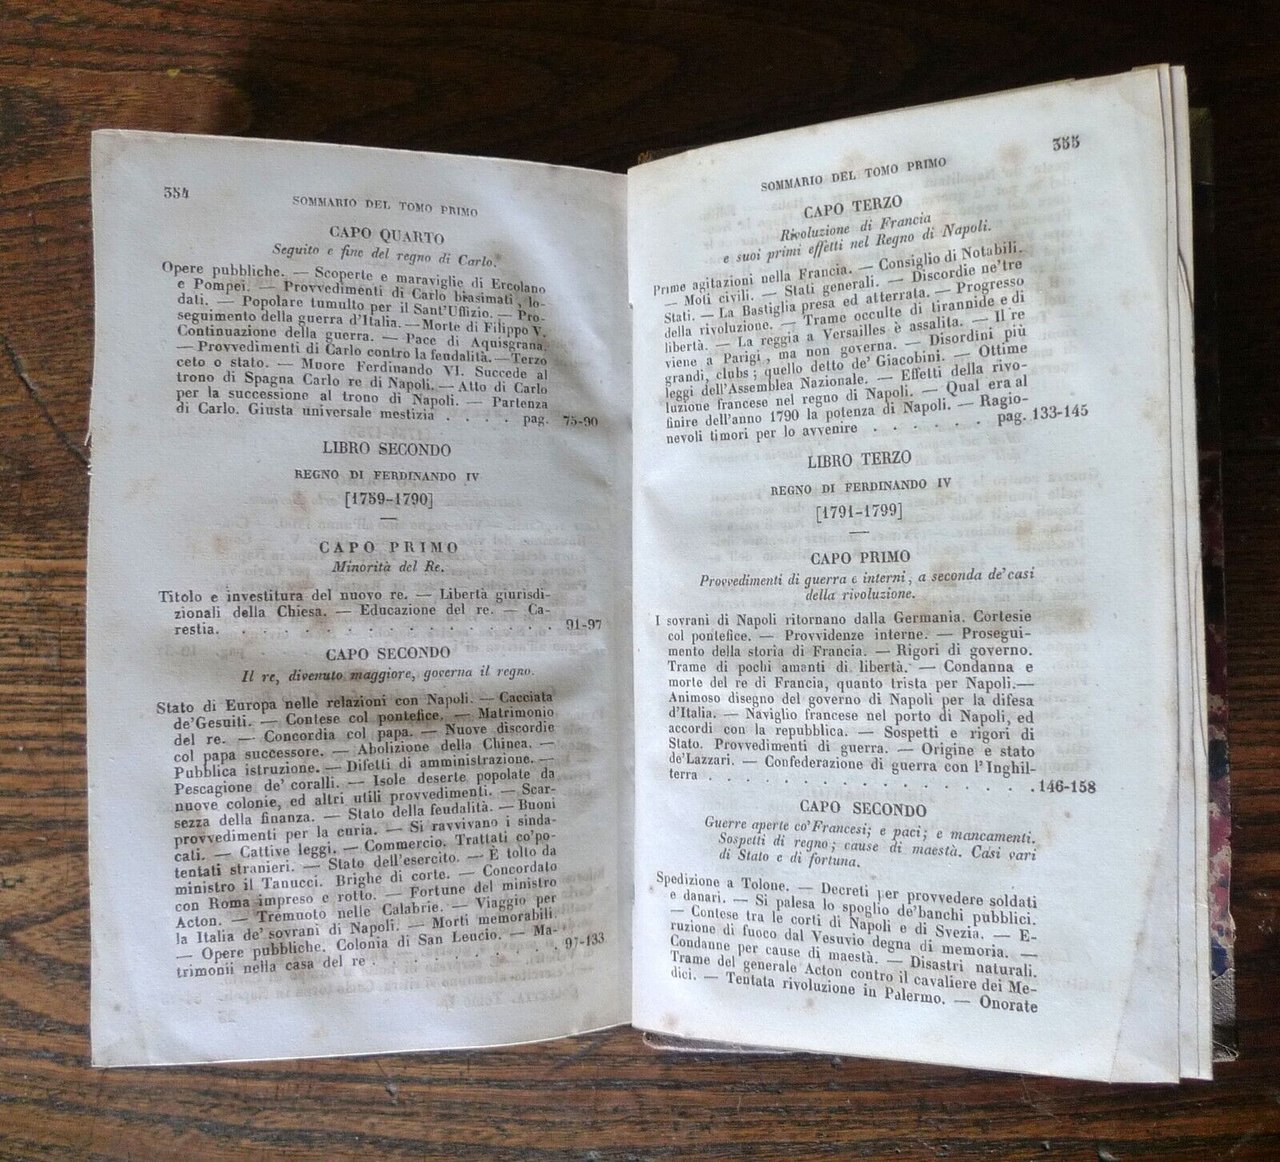 354
SOMMARIO DEL TOMO PRIMO
CAPO QUARTO
Seguito e fine del regno di Carlo.
Opere pubbliche. — Scoperte e maraviglie di Ercolano
e Pompei. — Provvedimenti di Carlo biasimati, lo-
dati. — Popolare tumulto per il Sant'Ufizio. — Pro-
seguimento della guerra d'Italia. — Morte di Filippo V.
Continuazione della guerra. — Pace di Aquisgrana.
— Provvedimenti di Carlo contro la feudalità. — Terzo
ceto o stato. — Muore Ferdinando VI. Succede al
trono di Spagna Carlo re di Napoli. — Atto di Carlo
per la successione al trono di Napoli. — Partenza
di Carlo. Giusta universale mestizia . . . . pag. 75-90
LIBRO SECONDO
REGNO DI FERDINANDO IV
[1759-1790]
—
CAPO PRIMO
Minorità del Re.
Titolo e investitura del nuovo re. — Libertà giurisdi-
zionali della Chiesa. — Educazione del re. — Ca-
restia. . . . . . . . . . . . . . . . . 91-97
CAPO SECONDO
Il re, divenuto maggiore, governa il regno.
Stato di Europa nelle relazioni con Napoli. — Cacciata
de'Gesuiti. — Contese col pontefice. — Matrimonio
del re. — Concordia col papa. — Nuove discordie
col papa successore. — Abolizione della Chinea. —
Pubblica istruzione. — Difetti di amministrazione. —
Pescagione de' coralli. — Isole deserte popolate da
nuove colonie, ed altri utili provvedimenti. — Scar-
sezza della finanza. — Stato della feudalità. — Buoni
provvedimenti per la curia. — Si ravvivano i sinda-
cati. — Cattive leggi. — Commercio. Trattati co'po-
tentati stranieri. — Stato dell'esercito. — È tolto da
ministro il Tanucci. Brighe di corte. — Concordato
con Roma impreso e rotto. — Fortune del ministro
Acton. — Tremuoto nelle Calabrie. — Viaggio per
la Italia de' sovrani di Napoli. — Morti memorabili.
— Opere pubbliche. Colonia di San Leucio. — Ma-
trimonii nella casa del re . . . . . . . . 97-133
355
SOMMARIO DEL TOMO PRIMO
CAPO TERZO
Rivoluzione di Francia
e suoi primi effetti nel Regno di Napoli.
Prime agitazioni nella Francia. — Consiglio di Notabili.
— Moti civili. — Stati generali. — Discordie ne'tre
Stati. — La Bastiglia presa ed atterrata. — Progresso
della rivoluzione. — Trame occulte di tirannide e di
libertà. — La reggia a Versailles è assalita. — Il re
viene a Parigi, ma non governa. — Disordini più
grandi, clubs; quello detto de' Giacobini. — Ottime
leggi dell'Assemblea Nazionale. — Effetti della rivo-
luzione francese nel regno di Napoli. — Qual era al
finire dell'anno 1790 la potenza di Napoli. — Ragio-
nevoli timori per lo avvenire . . . . . . pag. 133-145
LIBRO TERZO
REGNO DI FERDINANDO IV
[1791-1799]
—
CAPO PRIMO
Provvedimenti di guerra e interni, a seconda de'casi
della rivoluzione.
I sovrani di Napoli ritornano dalla Germania. Cortesie
col pontefice. — Provvidenze interne. — Prosegui-
mento della storia di Francia. — Rigori di governo.
Trame di pochi amanti di libertà. — Condanna e
morte del re di Francia, quanto trista per Napoli.—
Animoso disegno del governo di Napoli per la difesa
d'Italia. — Naviglio francese nel porto di Napoli, ed
accordi con la repubblica. — Sospetti e rigori di
Stato. Provvedimenti di guerra. — Origine e stato
de'Lazzari. — Confederazione di guerra con l'Inghil-
terra . . . . . . . . . . . . . . . 146-158
CAPO SECONDO
Guerre aperte co'Francesi; e paci; e mancamenti.
Sospetti di regno; cause di maestà. Casi vari
di Stato e di fortuna.
Spedizione a Tolone. — Decreti per provvedere soldati
e danari. — Si palesa lo spoglio de'banchi pubblici.
— Contese tra le corti di Napoli e di Svezia. — E-
ruzione di fuoco dal Vesuvio degna di memoria. —
Condanne per cause di maestà. — Disastri naturali.
Trame del generale Acton contro il cavaliere dei Me-
dici. — Tentata rivoluzione in Palermo. — Onorate